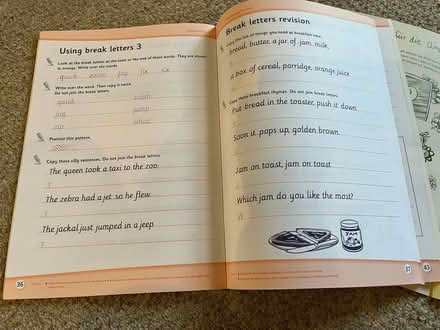 Using break letters 3
Look at the break letters at the start or the end of these words. They are shown in orange. Write over the words.
quick zoom jog fix
Write over the word. Then copy it twice.
Do not join the break letters.
quick
jog
zip
Practise this pattern.
Copy these silly sentences. Do not join the break letters.
The queen took a taxi to the zoo.
T
The zebra had a jet so he flew.
T
The jackal just jumped in a jeep
T
36
Break letters revision
Copy this list of things you need at breakfast time.
bread, butter, a jar of jam, milk,
a box of cereal, porridge, orange juice
Copy these breakfast rhymes. Do not join break letters.
Put bread in the toaster, push it down.
Soon it pops up, golden brown.
Jam on toast, jam on toast
Which jam do you like the most?
W
JAM
37
für die
43